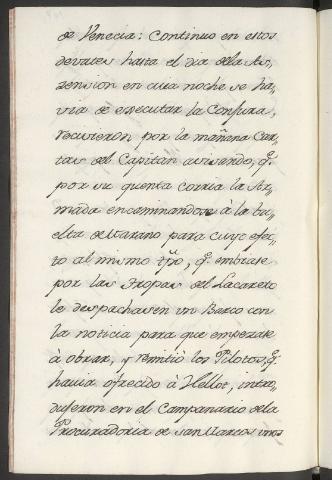 de Venecia: Continuo en estos
devates hasta el dia dela As,,
zension en cuia noche se ha,,
via de essecutar la Conjura,
recivieron por la mañana Car,,
tas del Capitan avisando, q.e
por su quenta corria la Ar,,
mada encaminandose à la bu,,
elta de Marano para cuyo efec,,
to al mismo tpo, q.e embiase
por las Tropas del Lazareto
le despachasen un Barco con
la noticia para que empezase
à obrar, y remitió los Pilotos, q.e
havia ofrecido à Hellot, intro,,
dujeron en el Campanario dela
Procuradoria de San Marcos unos